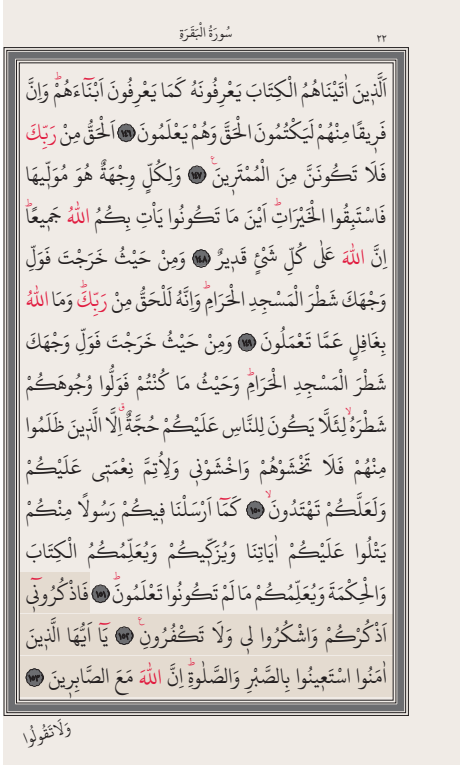 سُورَةُ الْبَقَرَةِ ٢٢
اَلَّذ۪ينَ اٰتَيْنَاهُمُ الْكِتَابَ يَعْرِفُونَهُ كَمَا يَعْرِفُونَ اَبْنَٓاءَهُمْۜ وَاِنَّ
فَر۪يقًا مِنْهُمْ لَيَكْتُمُونَ الْحَقَّ وَهُمْ يَعْلَمُونَ ﴿١٤٦﴾ اَلْحَقُّ مِنْ رَبِّكَ
فَلَا تَكُونَنَّ مِنَ الْمُمْتَر۪ينَ۟ ﴿١٤٧﴾ وَلِكُلٍّ وِجْهَةٌ هُوَ مُوَلّ۪يهَا
فَاسْتَبِقُوا الْخَيْرَاتِۜ اَيْنَ مَا تَكُونُوا يَأْتِ بِكُمُ اللّٰهُ جَم۪يعًاۜ
اِنَّ اللّٰهَ عَلٰى كُلِّ شَيْءٍ قَد۪يرٌ ﴿١٤٨﴾ وَمِنْ حَيْثُ خَرَجْتَ فَوَلِّ
وَجْهَكَ شَطْرَ الْمَسْجِدِ الْحَرَامِۜ وَاِنَّهُ لَلْحَقُّ مِنْ رَبِّكَۜ وَمَا اللّٰهُ
بِغَافِلٍ عَمَّا تَعْمَلُونَ ﴿١٤٩﴾ وَمِنْ حَيْثُ خَرَجْتَ فَوَلِّ وَجْهَكَ
شَطْرَ الْمَسْجِدِ الْحَرَامِۜ وَحَيْثُ مَا كُنْتُمْ فَوَلُّوا وُجُوهَكُمْ
شَطْرَهُۙ لِئَلَّا يَكُونَ لِلنَّاسِ عَلَيْكُمْ حُجَّةٌۗ اِلَّا الَّذ۪ينَ ظَلَمُوا
مِنْهُمْ فَلَا تَخْشَوْهُمْ وَاخْشَوْن۪ي وَلِاُتِمَّ نِعْمَت۪ي عَلَيْكُمْ
وَلَعَلَّكُمْ تَهْتَدُونَۙ ﴿١٥٠﴾ كَمَٓا اَرْسَلْنَا ف۪يكُمْ رَسُولًا مِنْكُمْ
يَتْلُوا عَلَيْكُمْ اٰيَاتِنَا وَيُزَكّ۪يكُمْ وَيُعَلِّمُكُمُ الْكِتَابَ
وَالْحِكْمَةَ وَيُعَلِّمُكُمْ مَا لَمْ تَكُونُوا تَعْلَمُونَۜ ﴿١٥١﴾ فَاذْكُرُون۪ٓي
اَذْكُرْكُمْ وَاشْكُرُوا ل۪ي وَلَا تَكْفُرُونِ۟ ﴿١٥٢﴾ يَٓا اَيُّهَا الَّذ۪ينَ
اٰمَنُوا اسْتَع۪ينُوا بِالصَّبْرِ وَالصَّلٰوةِۜ اِنَّ اللّٰهَ مَعَ الصَّابِر۪ينَ ﴿١٥٣﴾
وَلَا تَقُولُوا